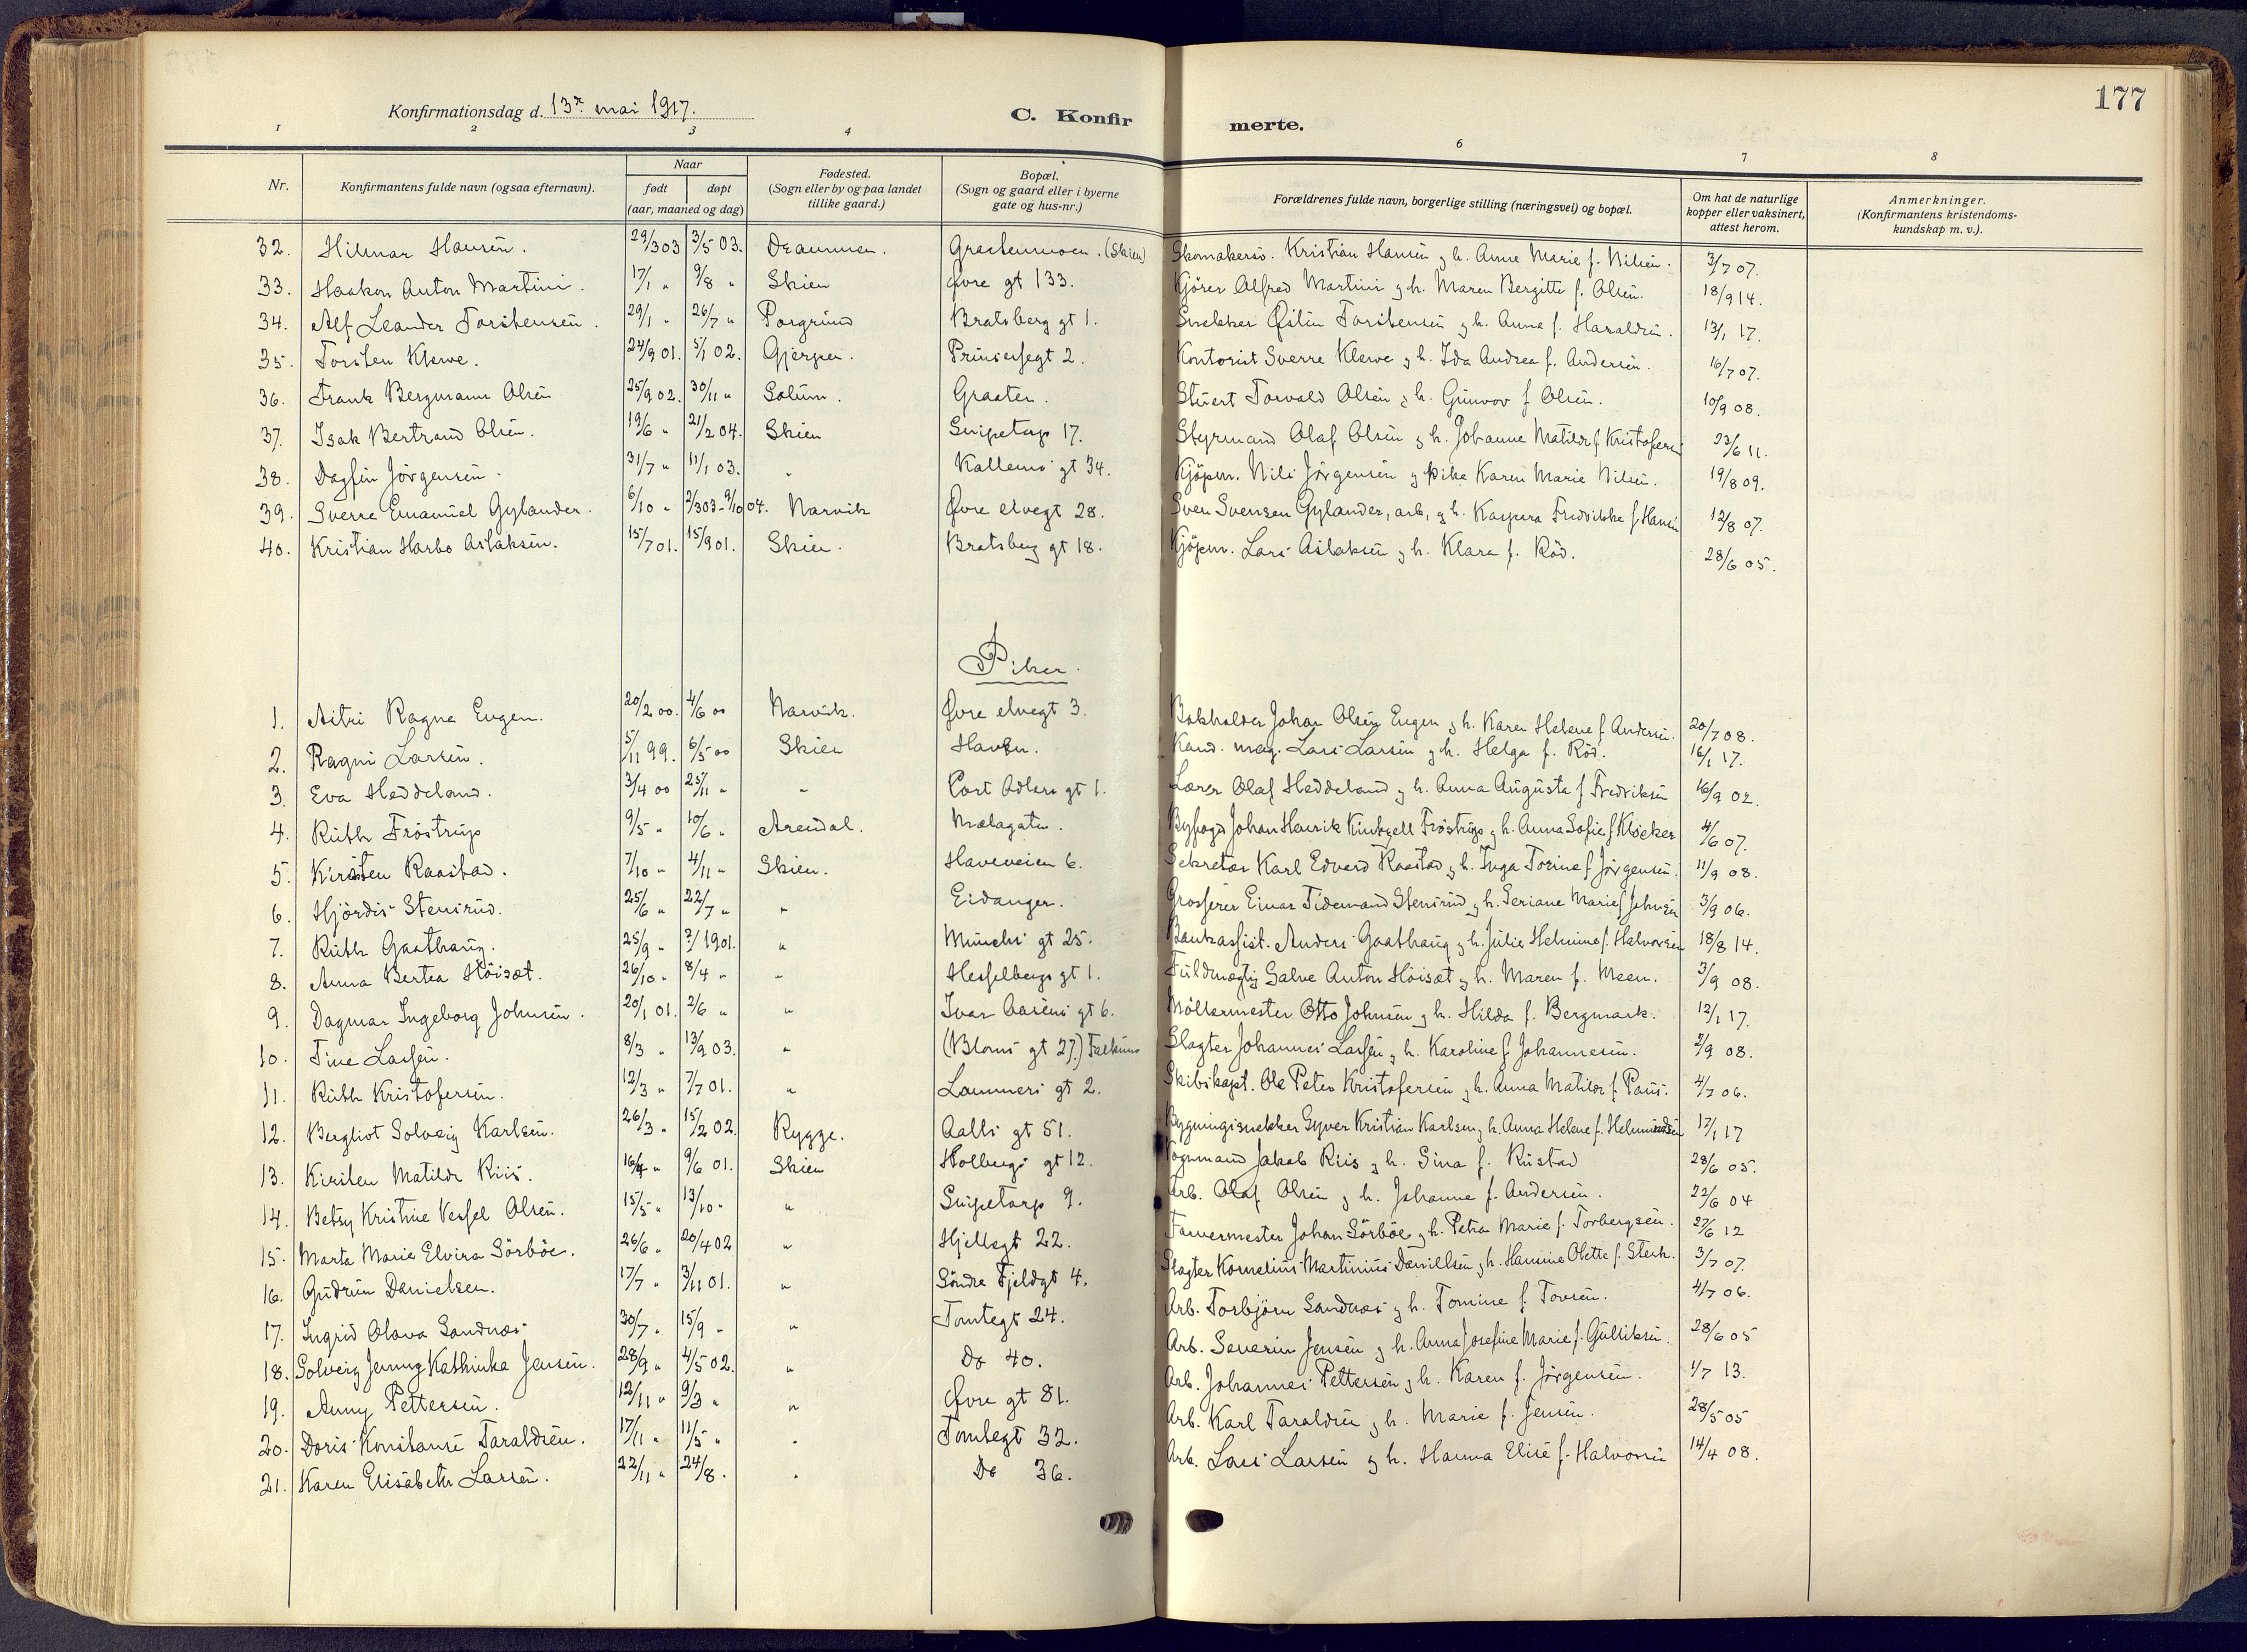 177
Konfirmationsdag d. 13de mai 1917.
C. Konfir merte.
1 2 3 4 6 7 8
Nr. Konfirmantens fulde navn (ogsaa efternavn). Naar født døpt (aar, maaned og dag) Fødested. (Sogn eller by og paa landet tillike gaard.) Bopæl. (Sogn og gaard eller i byerne gate og hus-nr.) Forældrenes fulde navn, borgerlige stilling (næringsvei) og bopæl. Om hat de naturlige kopper eller vaksinert, attest herom. Anmerkninger. (Konfirmantens kristendoms-kundskap m. v.).
32. Hilmar Hansen. 29/3 03 3/5 03. Drammen. Graatenmoen. (Skien) Skomakersv. Kristian Hansen og h. Anne Marie f. Nilsen. 3/7 07.
33. Haakon Anton Martini. 17/1 " 9/8 " Skien Øvre gt 133. Kjörer Alfred Martini og h. Maren Bergitte f. Olsen. 18/9 14.
34. Alf Leander Torstensen. 29/1 " 26/7 " Porgrund Bratsberg gt 1. Snekker Østen Torstensen og h. Anna f. Haraldsen. 13/1 17.
35. Torsten Klewe. 24/9 01. 5/1 02. Gjerpen. Prinsessegt 2. Kontorist Sverre Klewe og h. Ida Andrea f. Andersen. 16/7 07.
36. Frank Bergmann Olsen 25/9 02. 30/11 " Solum. Graaten. Stuert Torvald Olsen og h. Gunvor f Olsen. 10/9 08.
37. Isak Bertrand Olsen. 19/6 " 21/2 04. Skien Snipetorp 17. Styrmand Olaf Olsen og h. Johanne Matilde f Kristofersen 23/6 11.
38. Dagfin Jörgensen. 31/7 " 11/1 03. " Kallems gt 34. Kjöpm. Nils Jörgensen og pike Karen Marie Nilsen. 19/8 09.
39. Sverre Emanuel Gylander. 6/10 " 2/3 03 - 9/10 04. Narvik Øvre elvegt 28. Sven Svensen Gylander, arb, og h. Kaspara Fredrikke f Hansen 12/8 07.
40. Kristian Harbo Aslaksen. 15/7 01. 15/9 01. Skien. Bratsberg gt 18. Kjöpm. Lars Aslaksen og h. Klara f. Röd. 28/6 05.
Piker.
1. Aitri Ragna Engen. 20/2 00. 4/6 00 Narvik. Øvre elvegt 3. Bokholder Johan Olsen Engen og h. Karen Helene f Andersen. 20/7 08.
2. Ragni Larsen. 5/11 99. 6/5 00 Skien Haven. Kand. mag. Lars Larsen og h. Helga f. Röd. 16/1 17.
3. Eva Heddeland. 3/4 00 25/11 " " Cort Adlers gt 1. Lærer Olaf Heddeland og h. Anna Augusta f Fredriksen 16/9 02.
4. Ruth Fröstrup 9/5 " 10/6 " Arendal. Mælagaten. Byfogd Johan Henrik Fröstrup og h. Anna Sofie f Klöcker 4/6 07.
5. Kirsten Raastad. 7/10 " 4/11 " Skien. Haveveien 6. Sekretær Karl Edvard Raastad og h. Inga Torine f Jörgensen. 11/9 08.
6. Hjördis Stensrud. 25/6 " 22/7 " " Eidanger. Grosserer Einar Tidemand Stensrud og h. Seriane Marie f Johnsen 3/9 06.
7. Ruth Gaathaug. 25/9 " 3/1 1901. " Munchs gt 25. Bankassist. Anders Gaathaug og h. Julie Helmine f. Halvorsen 18/8 14.
8. Anna Bertea Höisæt. 26/10 " 8/4 " " Hesselbergs gt 1. Fuldmægtig Salve Anton Höisæt og h. Maren f. Meen. 3/9 08.
9. Dagmar Ingeborg Johnsen. 20/1 01. 2/6 " " Ivar Aasens gt 6. Möllermester Otto Johnsen og h. Hilda f. Bergmark. 12/1 17.
10. Tine Lassen. 8/3 " 13/9 03. " (Bloms gt 27.) Falkum Slagter Johannes Lassen og h. Karoline f Johannesen. 2/9 08.
11. Ruth Kristofersen. 12/3 " 7/7 01. " Lammers gt 2. Skibskapt. Ole Peter Kristofersen og h. Anna Matilde f. Paus. 4/7 06.
12. Bergliot Solveig Karlsen. 26/3 " 15/2 02. Rygge. Aalls gt 51. Bygningssnekker Syver Kristian Karlsen og h. Anna Helene f. Helmundsen 17/1 17
13. Kirsten Matilde Riis. 16/4 " 9/6 01. Skien Holbergs gt 12. Vognmand Jakob Riis og h. Sina f. Rustad 28/6 05.
14. Betzy Kristine Vessel Olsen. 15/5 " 13/10 " " Snipetorp 9. Arb. Olaf Olsen og h. Johanne f. Andersen. 22/6 04
15. Marta Marie Elvira Sörböe. 26/6 " 20/4 02 " Hjellegt 22. Farvermester Johan Sörböe og h. Petra Marie f. Torbergsen. 27/6 12
16. Gudrun Danielsen. 17/7 " 3/11 01. " Söndre Fjeldgt 4. Slagter Kornelius Martinius Daniellsen og h. Hansine Olette f. Sterk. 3/7 07.
17. Ingrid Olava Sandnæs 30/7 " 15/9 " " Tomtegt 24. Arb. Torbjörn Sandnæs og h. Tomine f. Tovsen. 4/7 06.
18. Solveig Jenny Kathinka Jensen. 28/9 " 4/5 02. " Do 40. Arb. Severin Jensen og h. Anna Josefine Marie f. Gulliksen. 28/6 05
19. Anny Pettersen. 12/11 " 9/3 " " Øvre gt 81. Arb. Johannes Pettersen og h. Karen f. Jörgensen. 1/7 13.
20. Doris Konstanse Taraldsen. 17/11 " 11/5 " " Tomtegt 32. Arb. Karl Taraldsen og h. Marie f. Jensen. 28/5 05
21. Karen Elisabeth Larsen. 22/11 " 24/8 " " Do 36. Arb. Lars Larsen og h. Hanna Elise f. Halvorsen 14/4 08.